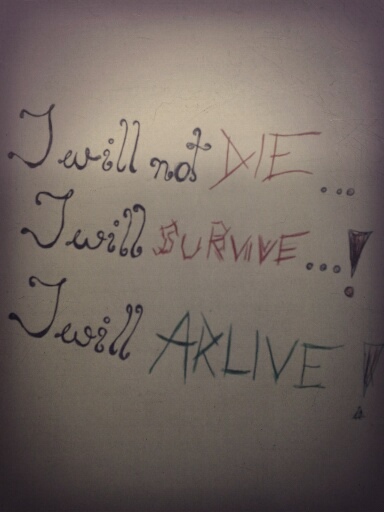 I will not DIE...
I will SURVIVE...!
I will ARLIVE!